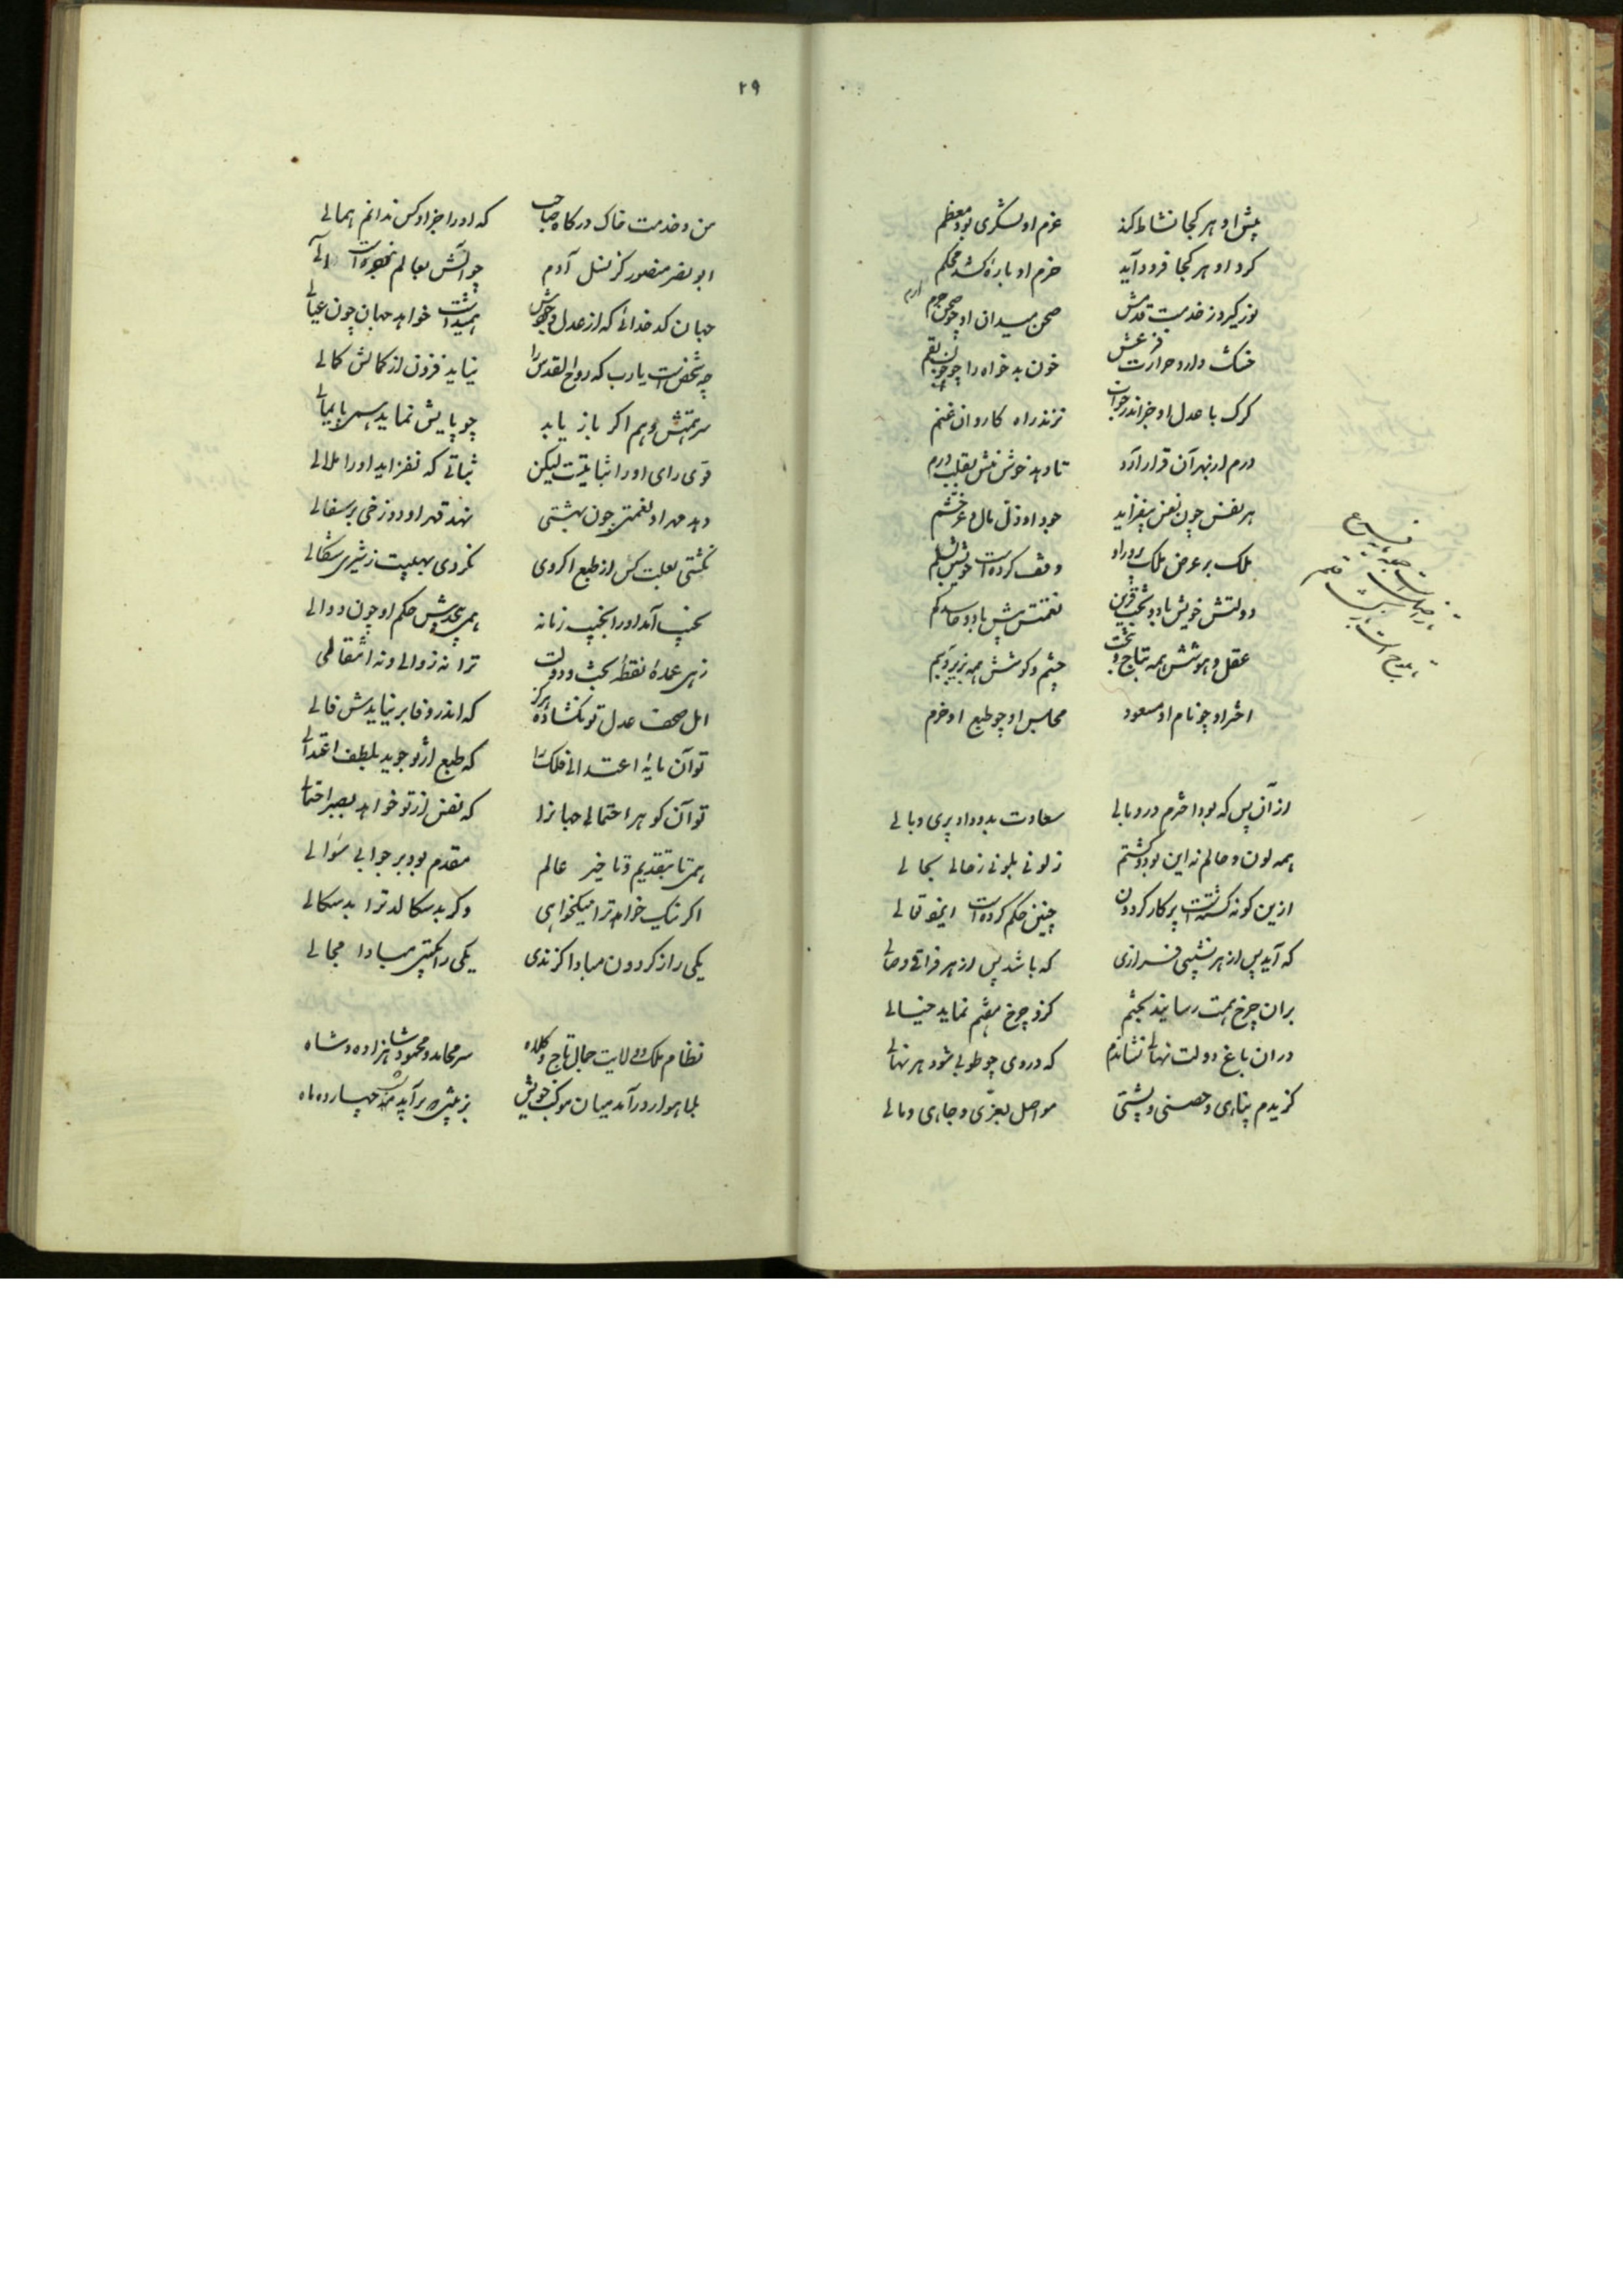 پیش او هر کجا نشاط کند عزم او لشکری بود معظم
کرد او هر کجا فرود آید حزم او باره کشد محکم
نور گیرد ز خدمت قدمش صحن میدان او چو صحن حرم
ارم
خشک دارد حرارت فزعش خون بدخواه را چو چوب بقم
کرک با عدل او جز اندر خواب نزند راه کاروان غنم
درم از بهر آن قرار آرد تا دهد خوش منش بقلب درم
هر نفس چون نفس بیفزاید جود او ذل مال و عز خشم
ملک بر عرض ملک پرور او وقف کرده است خویشتن
دولتش خویش باد و بخت قرین نعمتش پیش باد و حاسد کم
عقل و هوشش همه بتاج و بتخت چشم و کوشش همه بزیر و بم
اختر او چو نام او مسعود مجلس او چو طبع او خرم
از آن پس که بود اخترم در وبالی سعادت بدو داد پری و بالی
همه لون و حالم نه این بود و کشتم ز لونی بلونی ز حالی بحالی
ازین کونه کشته است پرکار کردون چنین حکم کرده است ایزد تعالی
که آید پس از هر نشیبی فرازی که باشد پس از هر فراقی وصالی
بران چرخ همت رسانید بختم کزو چرخ هفتم نماید خیالی
دران باغ دولت نهالی نشاندم که در وی چو طوبی شود هر نهالی
کزیدم پناهی و حصنی و پشتی مواصل بعزی و جاهی و مالی
۲۹
من و خدمت خاک درکاه صاحب که او را جز او کس ندانم همالی
ابو نصر منصور کز نسل آدم چو آتش بعالم نخورده است
جهان کدخدائی که از عدل و جودش همیداشت خواهد جهان چون عیالی
چه شخص است یارب که روح القدس را نیاید فزون از کمالش کمالی
سر همتش وهم اکر باز یابد چو پایش نماید سپهر پایمالی
قوی رای او را ثباتیست لیکن ثباتی که نفزاید او را ملالی
دهد مهر او نعمتی چون بهشتی نهد قهر او دوزخی بر سفالی
نکشتی بعلبت کس از طبع اکر وی نکردی بهیبت ز شیری شکالی
بجنب آمد او را بجنب زمانه همی پیچدش حکم او چون دوالی
زهی عمده نقطه بخت و دولت ترا نه زوالی و نه انتقالی
امل مصحف عدل تو نکشاده هرکز که اندر وفا بر نیایدش فالی
تو آن مایه اعتدالی فلک را که طبع از تو جوید بلطف اعتدالی
تو آن کوهر احتمالی جهانرا که نفس از تو خواهد بصبر احتمالی
همی تا بتقدیم و تاخیر عالم مقدم بود بر جوابی سوالی
اکر نیک خواهد ترا نیکخواهی وکر بد سکالد ترا بد سکالی
یکی را ز کردون مبادا کزندی یکی را بکیتی مبادا مجالی
نظام ملک و ولایت جمال تاج و کلاه سر محامد و محمود شاهزاده و شاه
بلهاور درآمد میان موکب خویش بر آید شب چهارده ماه